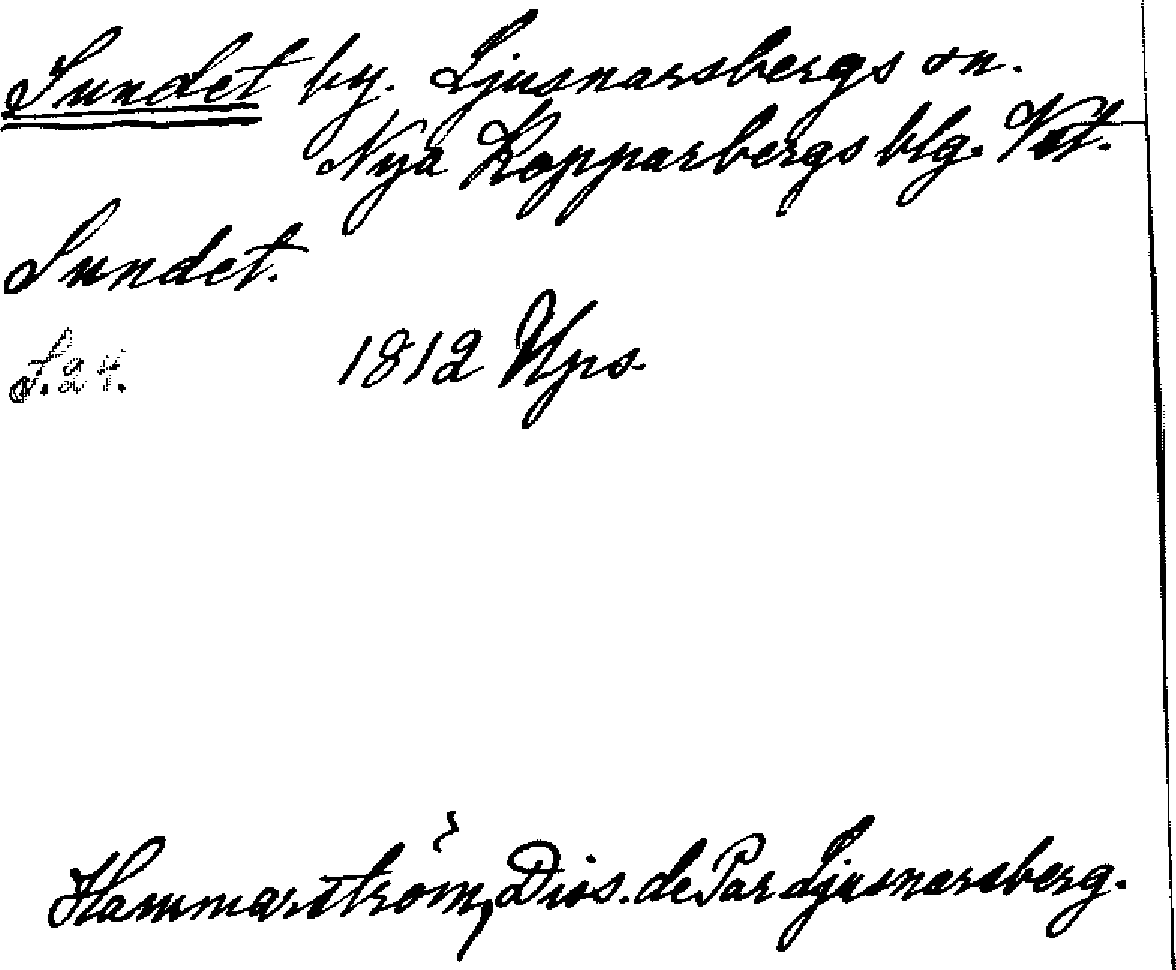 Sundet by. Ljusnarsbergs sn.
Nya Kopparbergs blg. Vstm.
Sundet.
S. 24. 1812 Ups.
Hammarström, Diss. de Par Ljusnarsberg.